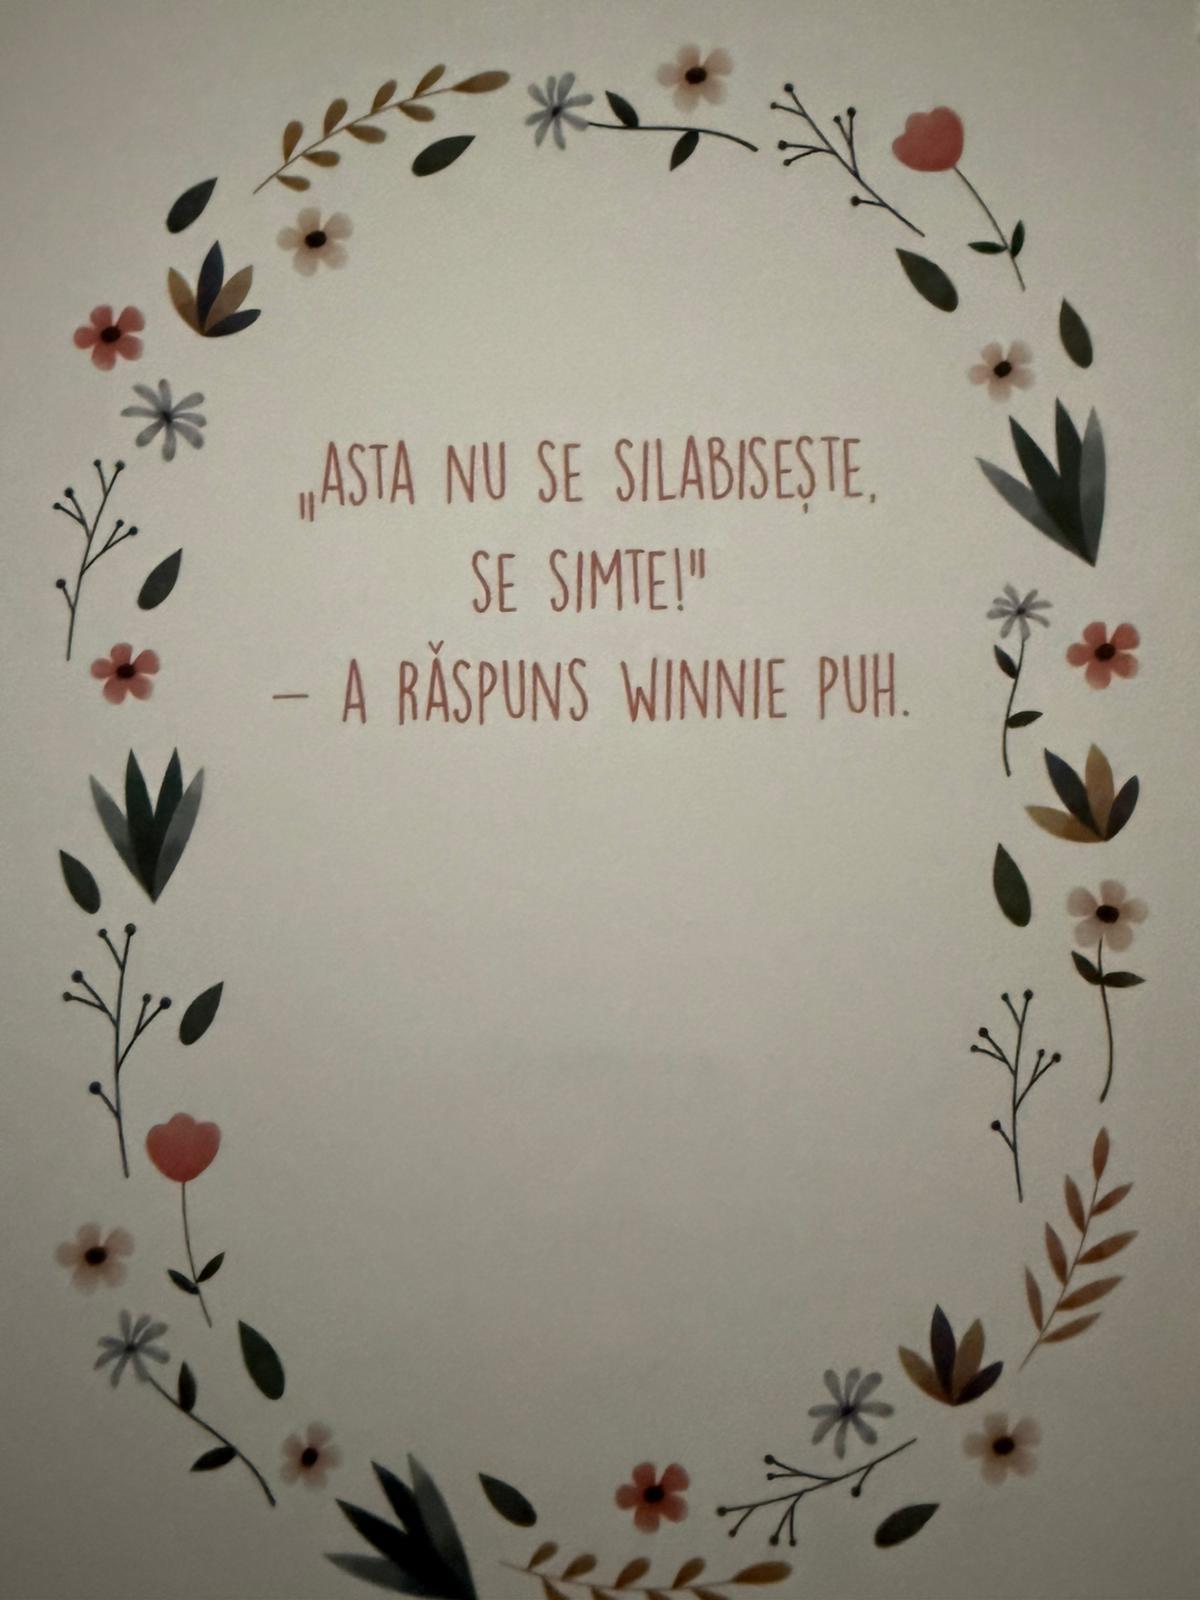 „ASTA NU SE SILABISEȘTE,
SE SIMTE!"
– A RĂSPUNS WINNIE PUH.